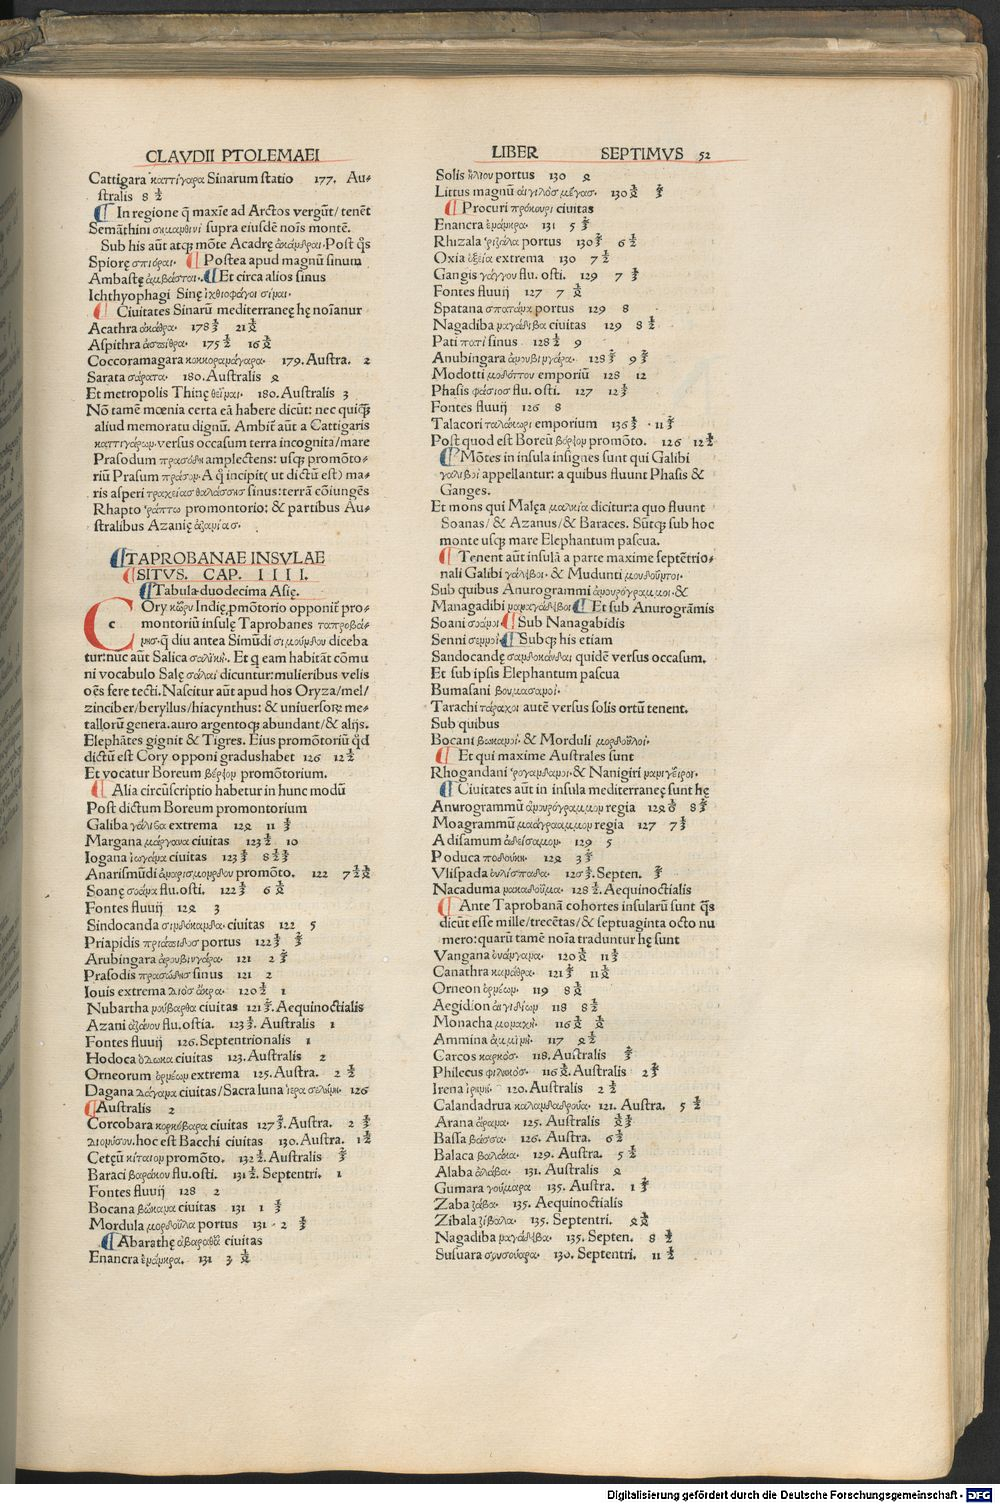 CLAVDII PTOLEMAEI
Cattigara καττίγαρα Sinarum statio 177. Au⸗
stralis 8 ½
In regione q̄ maxīe ad Arctos vergūt/ tenēt
Semāthini σημανθινί supra eiusdē noīs montē.
Sub his aūt atqꝫ mōte Acadrę ἀκάδραι. Post q̄s
Spiorę σπιόραι. Postea apud magnū sinum
Ambastę ἀμβάσται. Et circa alios sinus
Ichthyophagi Sinę ἰχθιοφάγοι σίναι.
Ciuitates Sinarū mediterraneę hę noīanur
Acathra ἀκάθρα.
Aspithra ἀσπίθρα.
Coccoramagara κοκκοραμάγαρα. 179. Austra. 2
Sarata σάρατα. 180. Australis 2
Et metropolis Thinę θεῖναι. 180. Australis 3
Nō tamē mœnia certa eā habere dicūt: nec quiqꝫ
aliud memoratu dignū. Ambiт̄ aūt a Cattigaris
καττιγάρων. versus occasum terra incognita/ mare
Prasodum πρασώδη amplectens: usqꝫ promōto⸗
riū Prasum πράσον. A q̄ incipit( ut dictū est) ma⸗
ris asperi τραχείας θαλάσσης sinus: terrā cōiungēs
Rhapto ῥάπτω promontorio: & partibus Au⸗
stralibus Azanię ἀζανίας.
TAPROBANAE INSVLAE
SITVS. CAP. IIII.
Tabula duodecima Asię.
COry κῶρυ Indię pmōtorio opponiт̄ pro⸗
montoriū insulę Taprobanes ταπροβά⸗
νης. q̄ diu antea Simūdi σιμούνδου diceba
tur: nuc aūt Salica σαλίκη. Et q eam habitāt cōmu
ni vocabulo Salę σάλαι dicuntur: mulieribus velis
oēs fere tecti. Nascitur aūt apud hos Oryza/ mel/
zinciber/ beryllus/ hiacynthus: & uniuersoꝝ me⸗
tallorū genera. auro argentoqꝫ abundant/ & alijs.
Elephātes gignit & Tigres. Eius promōtoriū q̄d
dictū est Cory opponi gradus habet 126 12 ½
Et vocatur Boreum βόρειον promōtorium.
Alia circūscriptio habetur in hunc modū
Post dictum Boreum promontorium
Galiba γάλιβα extrema
Margana μάργανα ciuitas 123 ½ 10
Iogana ἰωγάνα ciuitas
Anarismūdi ἀναρισμούνδου promōto. 122
Soanę σοάνα flu. osti.
Fontes fluuij 3
Sindocanda σινδόκανδα. ciuitas 122 5
Priapidis πριάπιδος portus
Arubingara ἀρουβινγάρα. 121
Prasodis πρασώδης sinus 121 2
Iouis extrema Διὸς ἄκρα. 120 ½ 1
Nubartha νούβαρθα ciuitas Aequinoctialis
Azani ἀζάνου flu. ostia. Australis 1
Fontes fluuij 126. Septentrionalis 1
Hodoca ὁδώκα ciuitas 123. Australis 2
Orneorum ὀρνέων extrema 125. Austra. 2 ½
Dagana Δάγανα ciuitas/ Sacra luna ἱερὰ σελήνη. 126
Australis 2
Corcobara κορκόβαρα ciuitas Austra.
Διονύσου. hoc est Bacchi ciuitas 130. Austra. 1 ½
Cetęū κήταιον promōto. 132 ½. Australis
Baraci βαράκου flu. osti. 131 ½. Septentri. 1
Fontes fluuij 128 2
Bocana βώκανα ciuitas 131
Mordula μορδοῦλα portus 131 · 2
Abarathę ἀβαραθα ciuitas
Enancra 131 3
LIBER SEPTIMVS 52
Solis ἡλίου portus 130
Littus magnū αἰγιαλὸς μέγας. 130
Procuri πρόκουρι ciuitas
Enancra 131 5
Rhizala ῥίζαλα portus
Oxia ὀξεῖα extrema 130 7 ½
Gangis γάγγου flu. osti. 129 7
Fontes fluuij 127 7
Spatana σπατάνα portus 129 8
Nagadiba ναγάδιβα ciuitas 129 8 ½
Pati πατι sinus 128 ½ 9
Anubingara ἀνουβινγάρα.
Modotti μοδόττου emporiū 128 12
Phasis φάσιος flu. osti. 127
Fontes fluuij 126 8
Talacori ταλάκωρι emporium
Post quod est Boreū βόρειον promōto. 126 12 ½
Mōtes in insula insignes sunt qui Galibi
γαλιβοὶ appellantur: a quibus fluunt Phasis &
Ganges.
Et mons qui Malęa μαλαία dicitur: a quo fluunt
Soanas/ & Azanus/ & Baraces. Sūtqꝫ sub hoc
monte usqꝫ mare Elephantum pascua.
Tenent aūt insulā a parte maxime septētrio⸗
nali Galibi γάλιβοι. & Mudunti μουδοῦντοι.
Sub quibus Anurogrammi ἀνουρόγραμμοι. &
Managadibi ναναγάδιβοι Et sub Anurogrāmis
Soani σοάνοι Sub Nanagabidis
Senni σεννοί. Subqꝫ his etiam
Sandocandę σανδοκάνδαι quidē versus occasum.
Et sub ipsis Elephantum pascua
Bumasani βουμασανοί.
Tarachi τάραχοι autē versus solis ortū tenent.
Sub quibus
Bocani βωκανοί. & Morduli μορδοῦλοι.
Et qui maxime Australes sunt
Rhogandani ῥογανδανοι. & Nanigiri νανιγειροι.
Ciuitates aūt in insula mediterraneę sunt hę
Anurogrammū ἀνουρόγραμμον regia
Moagrammū μαάγραμμον regia 127
Adisamum ἀδείσαμον. 129 5
Poduca ποδούκη.
Vlispada οὐλίσπαδα. Septen.
Nacaduma νακαδοῦμα. 128 ½. Aequinoctialis
Ante Taprobanā cohortes insularū sunt q̄s
dicūt esse mille/ trecētas/ & septuaginta octo nu
mero: quarū tamē noīa traduntur hę sunt
Vangana οὐάνγανα.
Canathra κανάθρα.
Orneon ὀρνέων. 119
Aegidion αἰγιδίων 118 8 ½
Monacha μοναχή.
Ammina ἀμμινή. 117
Carcos καρκός. 118. Australis
Philecus φιληκός. Australis
Irena ἰρηνή. 120. Australis 2 ½
Calandadrua καλανδαδρούα. 121. Austra. 5 ½
Arana ἄρανα. 125. Australis
Bassa βάσσα. 126. Austra. 6 ½
Balaca βαλάκα. 129. Austra. 5 ½
Alaba ἀλάβα. 131. Australis
Gumara γούμαρα 135. Austra.
Zaba ζάβα. 135. Aequinoctialis
Zibala ζίβαλα. 135. Septentri.
Nagadiba ναγάδιβα. 135. Septen. 8 ½
Susuara σουσούαρα. 130. Septentri. 11 ½
Digitalisierung gefördert durch die Deutsche Forschungsgemeinschaft - DFG